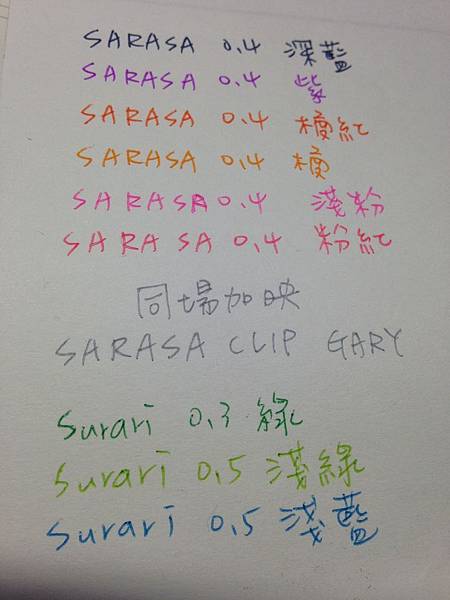 SARASA 0.4 深藍
SARASA 0.4 紫
SARASA 0.4 橘紅
SARASA 0.4 橘
SARASA 0.4 淺粉
SARASA 0.4 粉紅
同場加映
SARASA CLIP GARY
Surari 0.3 綠
Surari 0.5 淺綠
Surari 0.5 淺藍